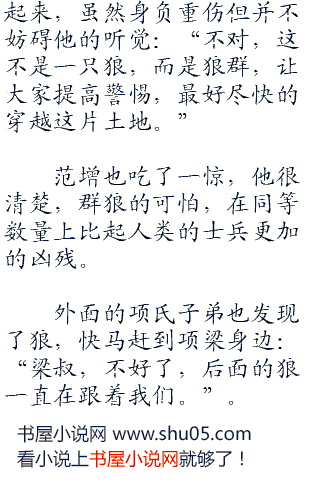 起来，虽然身负重伤但并不
妨碍他的听觉：“不对，这
不是一只狼，而是狼群，让
大家提高警惕，最好尽快的
穿越这片土地。”
范增也吃了一惊，他很
清楚，群狼的可怕，在同等
数量上比起人类的士兵更加
的凶残。
外面的项氏子弟也发现
了狼，快马赶到项梁身边：
“梁叔，不好了，后面的狼
一直在跟着我们。”。
书屋小说网 www.shu05.com
看小说上书屋小说网就够了！